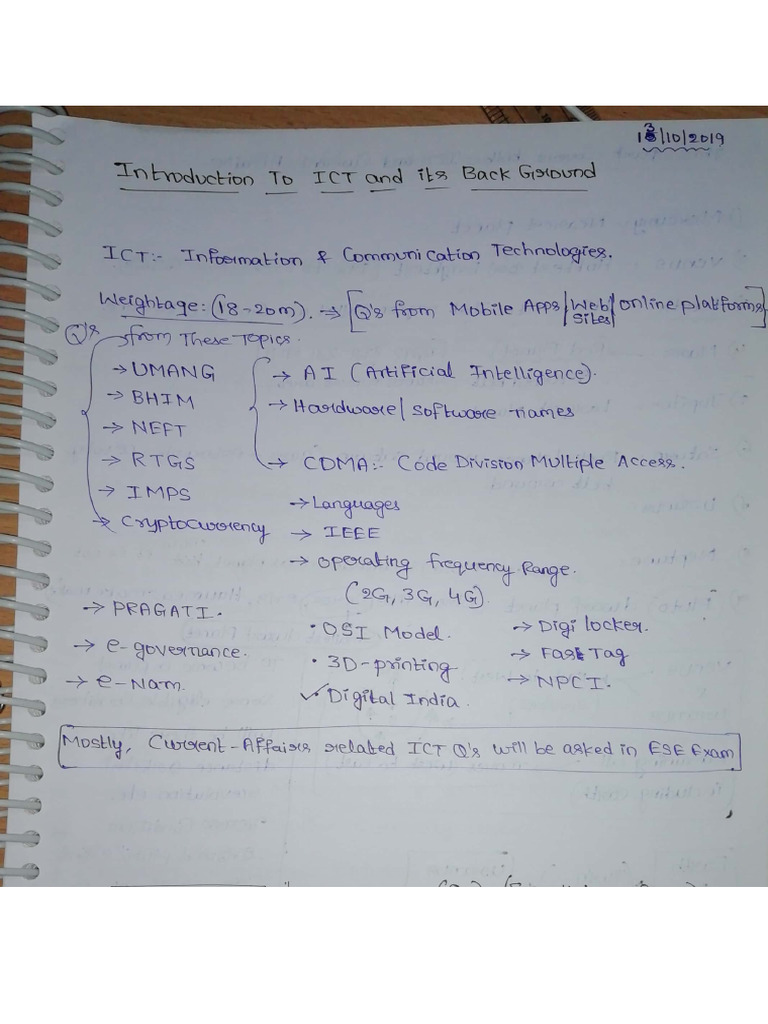 13/10/2019
Introduction To ICT and its Back Ground
ICT:- Information & Communication Technologies.
Weightage: (18-20m). → [Q's from Mobile Apps/Web Sites/online platforms]
Q's from These Topics.
→ UMANG
→ AI (Artificial Intelligence).
→ BHIM
→ Hardware/Software names
→ NEFT
→ RTGS
→ CDMA:- Code Division Multiple Access.
→ IMPS
→ Languages
→ Cryptocurrency
→ IEEE
→ Operating frequency Range.
(2G, 3G, 4G).
→ PRAGATI.
• OSI Model.
→ Digi locker.
→ e-governance.
• 3D-printing
→ Fas Tag
→ e-Nam.
✓ Digital India.
→ NPCI.
Mostly, Current-Affairs related ICT Q's will be asked in ESE Exam